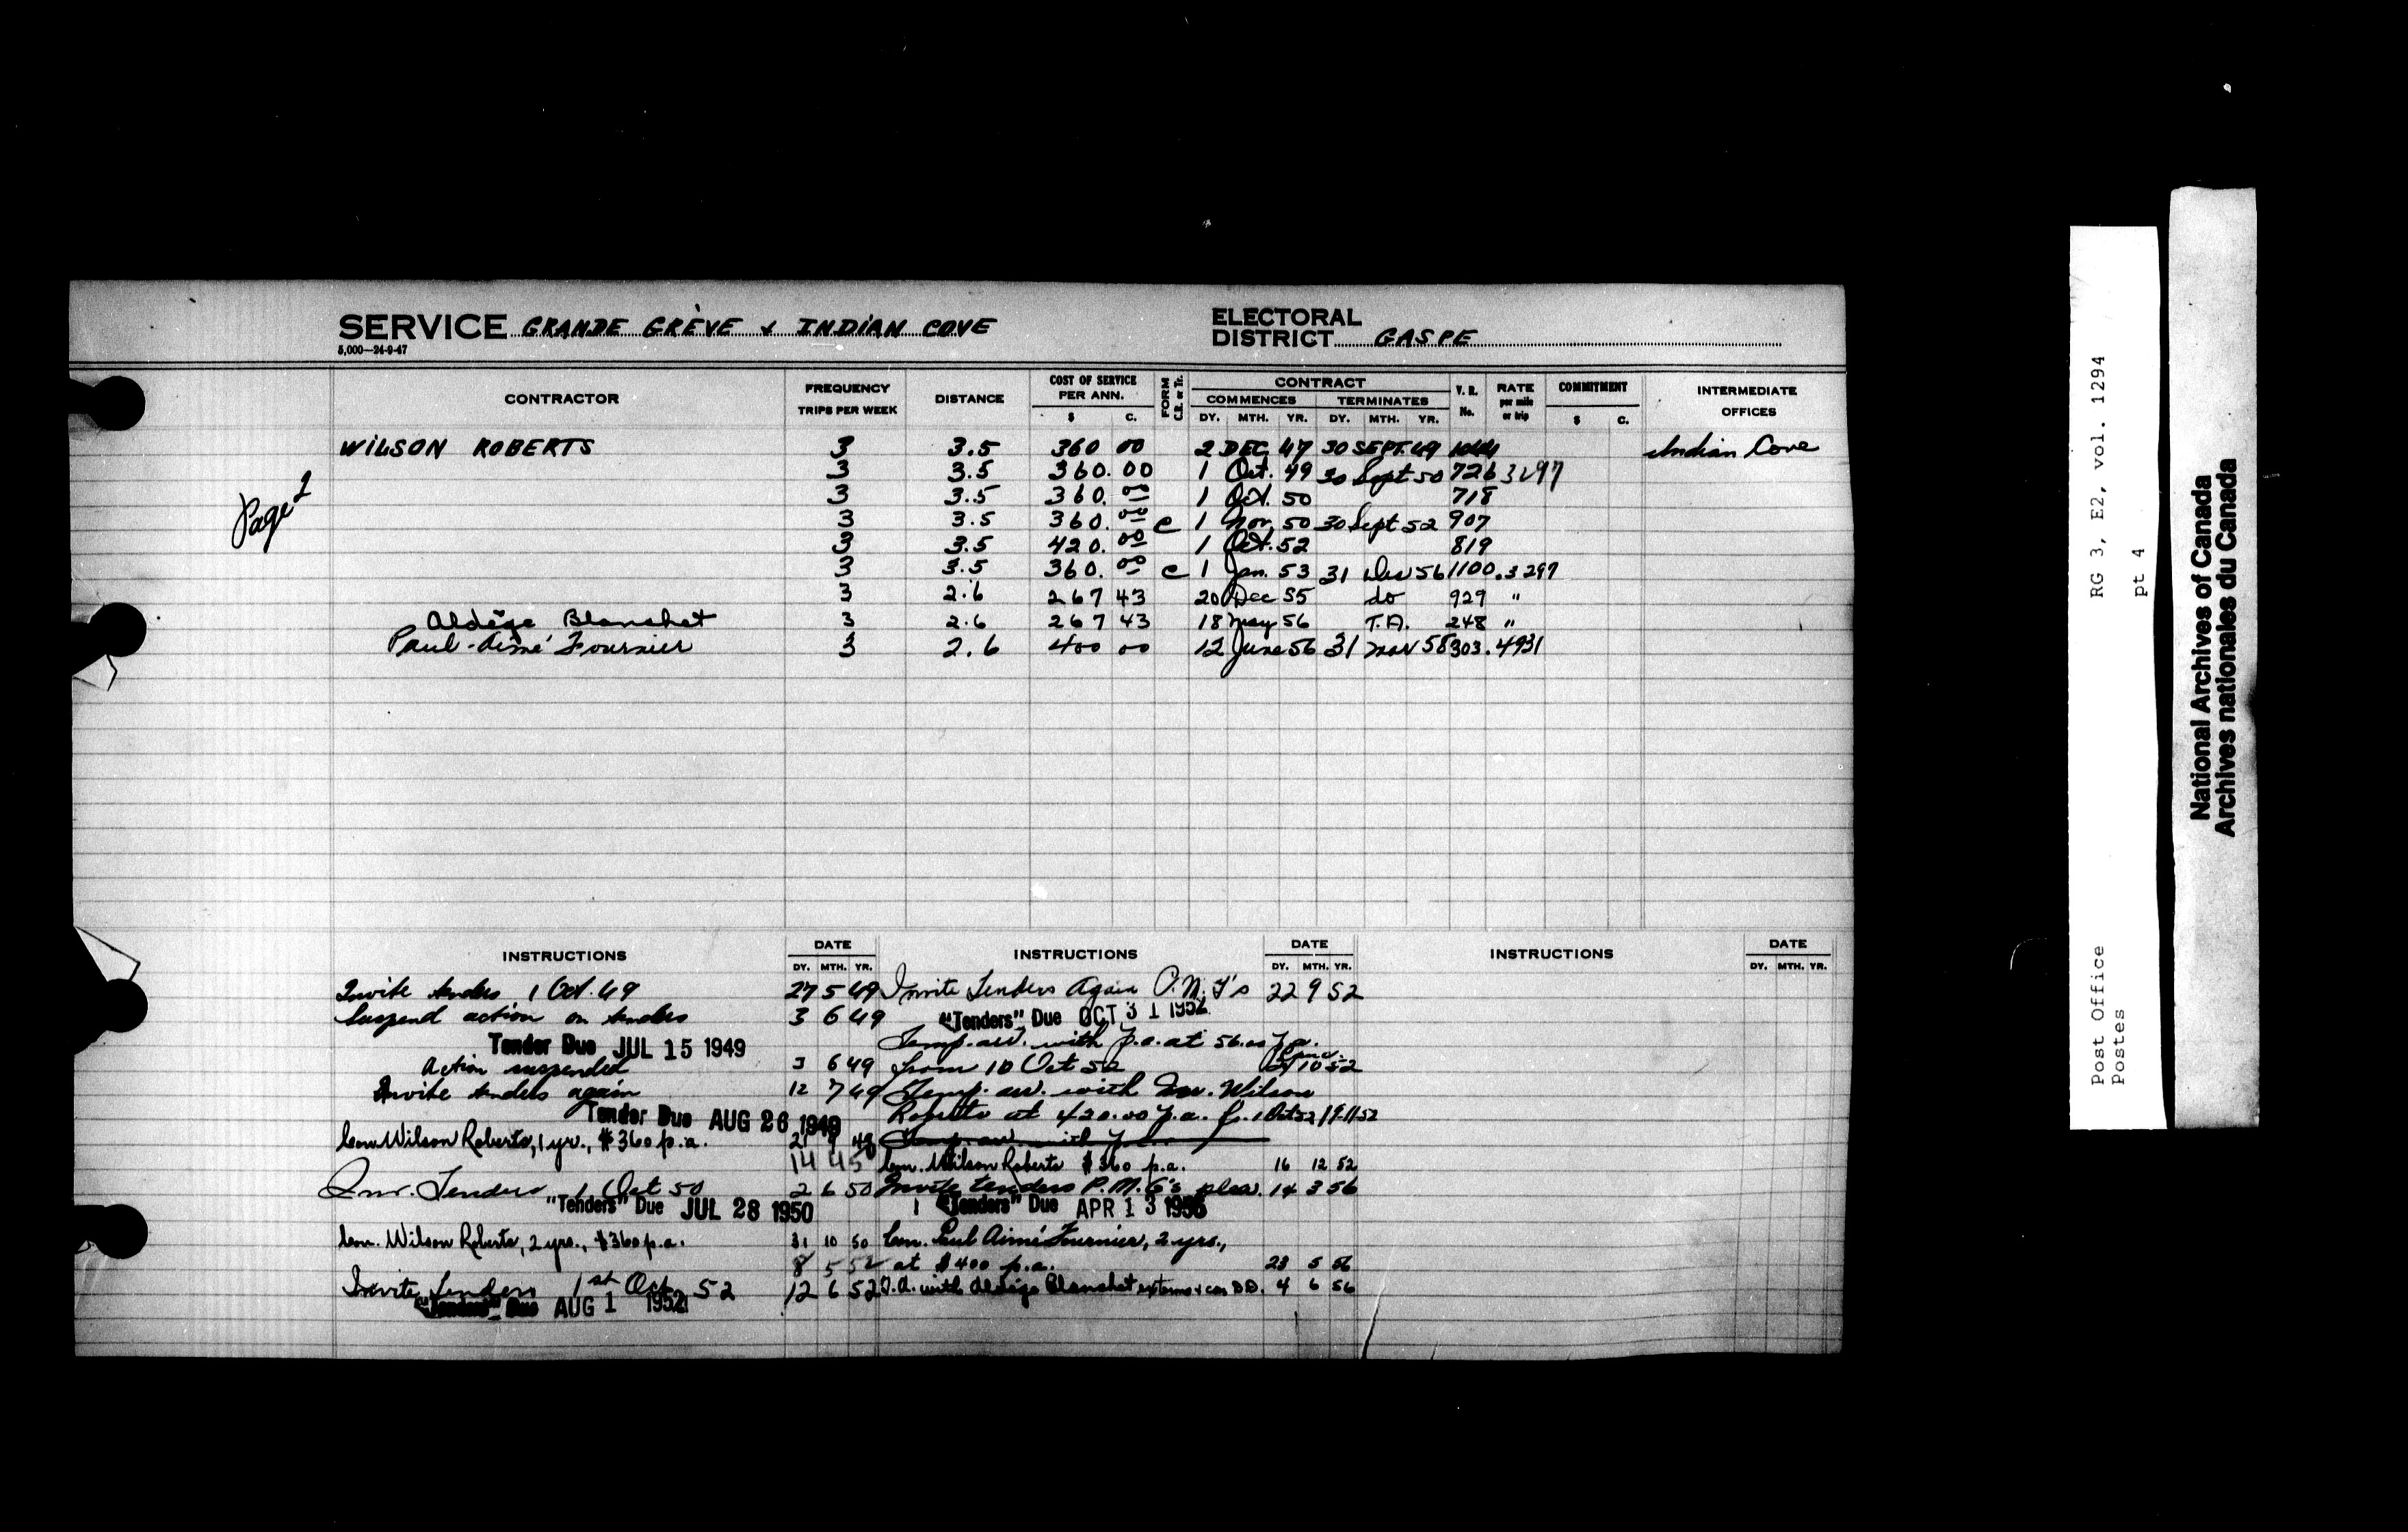 SERVICE GRANDE GRÈVE & INDIAN COVE
5,000—24-9-47
ELECTORAL DISTRICT GASPE
CONTRACTOR FREQUENCY TRIPS PER WEEK DISTANCE COST OF SERVICE PER ANN. $ C. FORM C.R. or Tr. CONTRACT COMMENCES DY. MTH. YR. TERMINATES DY. MTH. YR. V. R. No. RATE per mile or trip COMMITMENT $ C. INTERMEDIATE OFFICES
WILSON ROBERTS 3 3.5 360 00 2 DEC 47 30 SEPT. 49 Indian Cove
3 3.5 360.00 1 Oct. 49 30 Sept 50 726 3297
3 3.5 360.00 1 Oct. 50 718
3 3.5 360.00 C 1 Nov. 50 30 Sept 52 907
3 3.5 420.00 1 Oct. 52 819
3 3.5 360.00 C 1 Jan. 53 31 Dec 56 1100 .3297
3 2.6 267 43 20 Dec 55 do 929 "
Aldège Blanchet 3 2.6 267 43 18 May 56 T.A. 248 "
Paul-Aimé Fournier 3 2.6 400 00 12 June 56 31 Mar 58 303 .4931
Page 1
INSTRUCTIONS DATE DY. MTH. YR.
Invite tenders 1 Oct. 49 27 5 49
Suspend action on tenders 3 6 49
Tender Due JUL 15 1949
Action suspended 3 6 49
Invite tenders again 12 7 49
Tender Due AUG 26 1949
Con. Wilson Roberts, 1 yr., $360 p.a. 49
14 4 50
Inv. Tenders 1 Oct 50 2 6 50
"Tenders" Due JUL 28 1950
Con. Wilson Roberts, 2 yrs., $360 p.a. 31 10 50
8 5 52
Invite Tenders 1st Oct 52 12 6 52
"Tenders" Due AUG 1 1952
INSTRUCTIONS DATE DY. MTH. YR.
Invite Tenders Again P.M.G's 22 9 52
"Tenders" Due OCT 31 1952
Temp. arr. with p.a. at 56.00 p.a.
from 10 Oct 52 10 52
Temp. arr. with Mr. Wilson
Roberts at 420.00 p.a. fr. 1 Oct 52 19-11-52
Temp. arr. with
Con. Wilson Roberts $360 p.a. 16 12 52
Invite tenders P.M.G's plea. 14 3 56
"Tenders" Due APR 13 1956
Con. Paul Aimé Fournier, 2 yrs.,
at $400 p.a. 23 5 56
T.A. with Aldège Blanchet 4 6 56
INSTRUCTIONS DATE DY. MTH. YR.
Post Office RG 3, E2, vol. 1294
Postes pt 4
National Archives of Canada
Archives nationales du Canada